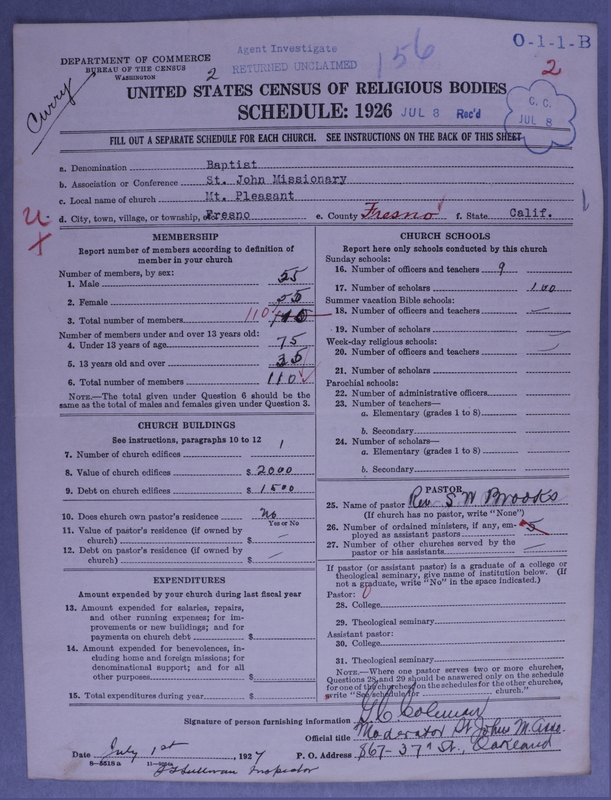 Agent Investigate
DEPARTMENT OF COMMERCE
BUREAU OF THE CENSUS
WASHINGTON
2
RETURNED UNCLAIMED
156
O-1-1-B
2
Curry
UNITED STATES CENSUS OF RELIGIOUS BODIES
SCHEDULE: 1926 JUL 8 Rec'd
C. C.
JUL 8
FILL OUT A SEPARATE SCHEDULE FOR EACH CHURCH. SEE INSTRUCTIONS ON THE BACK OF THIS SHEET
a. Denomination Baptist
b. Association or Conference St. John Missionary
c. Local name of church Mt. Pleasant
d. City, town, village, or township, Fresno e. County Fresno f. State Calif.
MEMBERSHIP
Report number of members according to definition of
member in your church
Number of members, by sex:
1. Male 55
2. Female 55
3. Total number of members 110
Number of members under and over 13 years old:
4. Under 13 years of age 75
5. 13 years old and over 35
6. Total number of members 110
NOTE.—The total given under Question 6 should be the
same as the total of males and females given under Question 3.
CHURCH BUILDINGS
See instructions, paragraphs 10 to 12
7. Number of church edifices 1
8. Value of church edifices $ 2000
9. Debt on church edifices $ 1500
10. Does church own pastor's residence No
Yes or No
11. Value of pastor's residence (if owned by
church) $ —
12. Debt on pastor's residence (if owned by
church) $ —
EXPENDITURES
Amount expended by your church during last fiscal year
13. Amount expended for salaries, repairs,
and other running expenses; for im-
provements or new buildings; and for
payments on church debt $
14. Amount expended for benevolences, in-
cluding home and foreign missions; for
denominational support; and for all
other purposes $
15. Total expenditures during year $
CHURCH SCHOOLS
Report here only schools conducted by this church
Sunday schools:
16. Number of officers and teachers 9
17. Number of scholars 100
Summer vacation Bible schools:
18. Number of officers and teachers —
19. Number of scholars —
Week-day religious schools:
20. Number of officers and teachers —
21. Number of scholars
Parochial schools:
22. Number of administrative officers
23. Number of teachers—
a. Elementary (grades 1 to 8)
b. Secondary
24. Number of scholars—
a. Elementary (grades 1 to 8)
b. Secondary
PASTOR
25. Name of pastor Rev S W Brooks
(If church has no pastor, write "None")
26. Number of ordained ministers, if any, em-
ployed as assistant pastors 5
27. Number of other churches served by the
pastor or his assistants —
If pastor (or assistant pastor) is a graduate of a college or
theological seminary, give name of institution below. (If
not a graduate, write "No" in the space indicated.)
Pastor:
28. College
29. Theological seminary
Assistant pastor:
30. College
31. Theological seminary
NOTE.—Where one pastor serves two or more churches,
Questions 28 and 29 should be answered only on the schedule
for one of the churches; on the schedules for the other churches,
write "See schedule for church."
Signature of person furnishing information G C Coleman
Official title Moderator St Johns M. Assn.
Date July 1st, 1927 P. O. Address 867-37th St., Oakland
8-5518a
Inspector